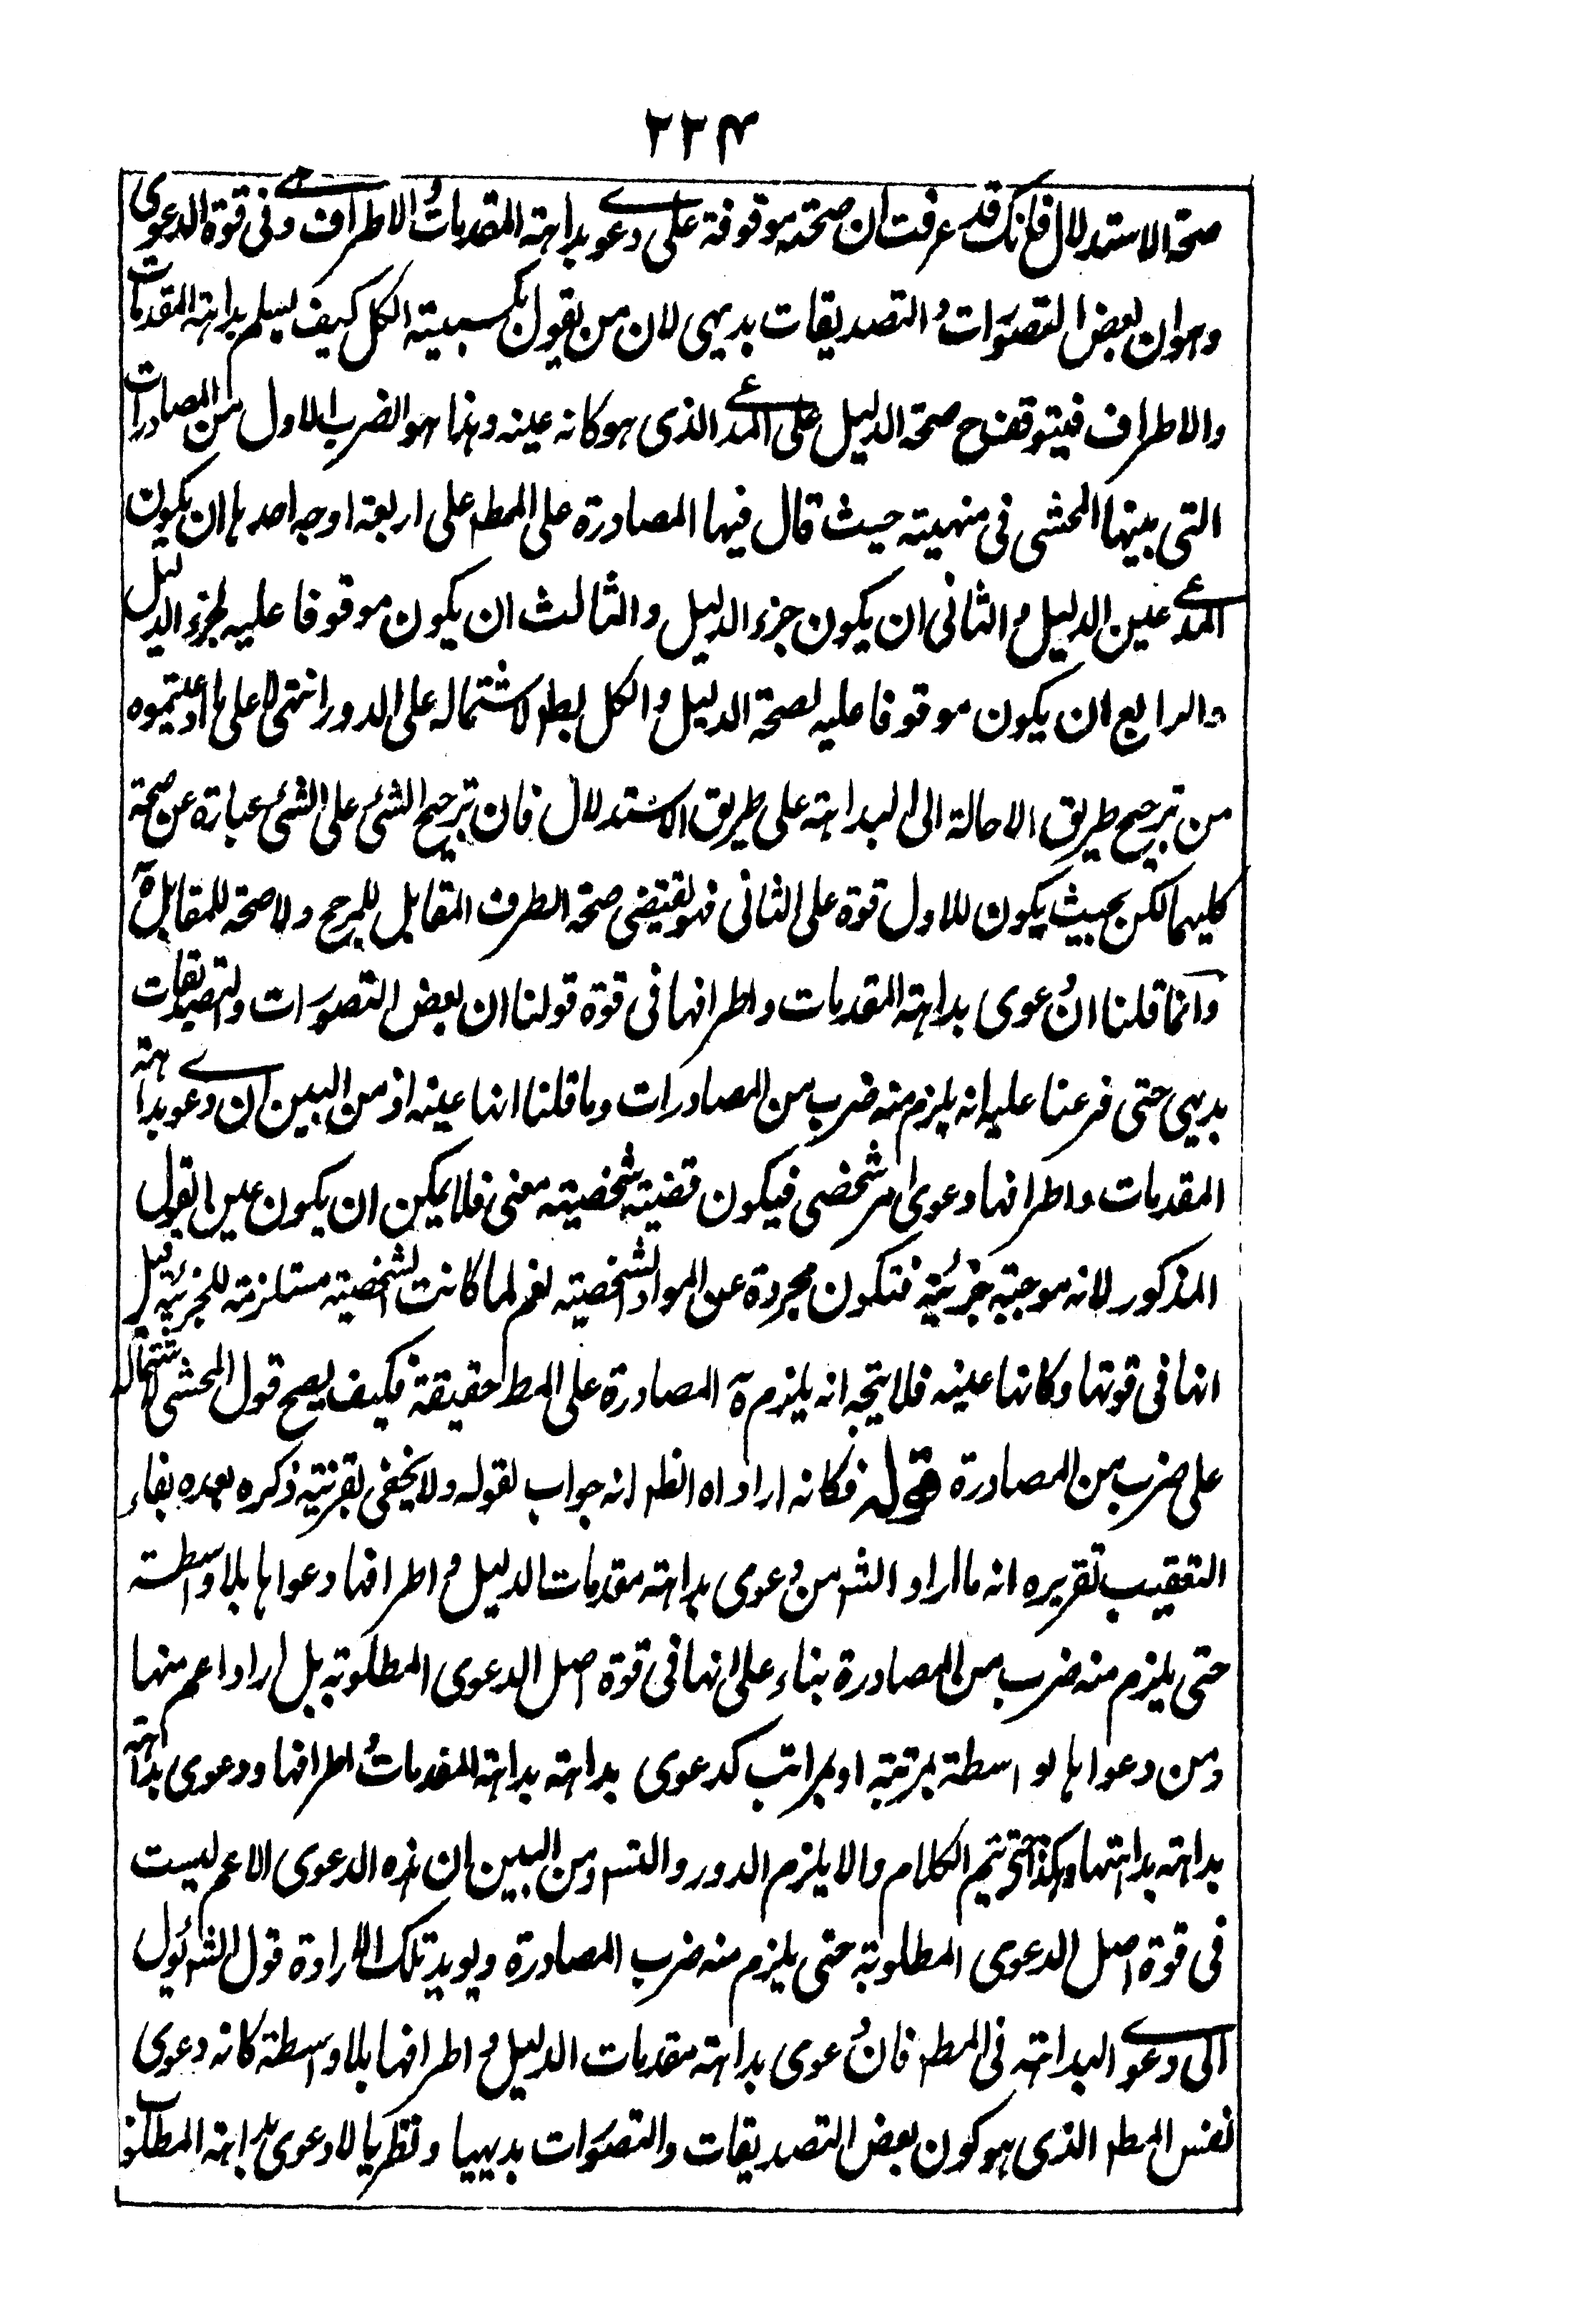 ٢٢٤
صحة الاستدلال فانك قد عرفت ان صحته موقوفة على دعوى بداهة المقدمات و الاطراف وهى فى قوة الدعوى
وهو ان بعض التصورات و التصديقات بديهى لان من يقول بكسبية الكل كيف يسلم بداهة المقدمات
والاطراف فيتوقف ح صحة الدليل على المدعى الذى هو كانه عينه وهذا هو الضرب الاول من المصادرات
التى بينها المحشى فى منهيته حيث قال فيها المصادرة على المطم على اربعة اوجه احدها ان يكون
المدعى عين الدليل و الثانى ان يكون جزء الدليل والثالث ان يكون موقوفا عليه لجزء الدليل
والرابع ان يكون موقوفا عليه لصحة الدليل والكل بطم لاشتماله على الدور انتهى لا على ما ادعيتموه
من ترجيح طريق الاحالة الى البداهة على طريق الاستدلال فان ترجيح الشئ على الشئ عبارة عن صحة
كليهما لكن بحيث يكون للاول قوة على الثانى فهو يقتضى صحة الطرف المقابل للمرجح ولا صحة للمقابل ههنا
وانما قلنا ان دعوى بداهة المقدمات واطرافها فى قوة قولنا ان بعض التصورات والتصديقات
بديهى حتى فرعنا عليه انه يلزم منه ضرب من المصادرات وما قلنا انها عينه اذ من البين ان دعوى بداهة
المقدمات واطرافها دعوى امر شخصى فيكون قضية شخصية معنى فلا يمكن ان يكون عين القول
المذكور لانه موجبة جزئية فتكون مجردة عن المواد الشخصية نعم لما كانت الشخصية مستلزمة للجزئية قيل
انها فى قوتها وكانها عينه فلا يتجه انه يلزم ه المصادرة على المط حقيقة فكيف يصح قول المحشى لاشتماله
على ضرب من المصادرة قوله فكانه اراد اه الظم انه جواب لقوله ولا يخفى بقرينة ذكره بعده بفاء
التعقيب تقريره انه ما اراد الشم من دعوى بداهة مقدمات الدليل و اطرافها دعواها بلا واسطة
حتى يلزم منه ضرب من المصادرة بناء على انها فى قوة اصل الدعوى المطلوبة بل اراد اعم منها
ومن دعواها بواسطة بمرتبة او بمراتب كدعوى بداهة بداهة المقدمات و اطرافها ودعوى بداهة
بداهة بداهتها وهكذا حتى يتم الكلام والا يلزم الدور والتسم ومن البين ان هذه الدعوى الاعم ليست
فى قوة اصل الدعوى المطلوبة حتى يلزم منه ضرب المصادرة ويويد تلك الارادة قول الشم يئول
الى دعوى البداهة فى المطم فان دعوى بداهة مقدمات الدليل و اطرافها بلا واسطة كانه دعوى
نفس المطم الذى هو كون بعض التصديقات والتصورات بديهيا ونظريا لا دعوى بداهة المطلوب